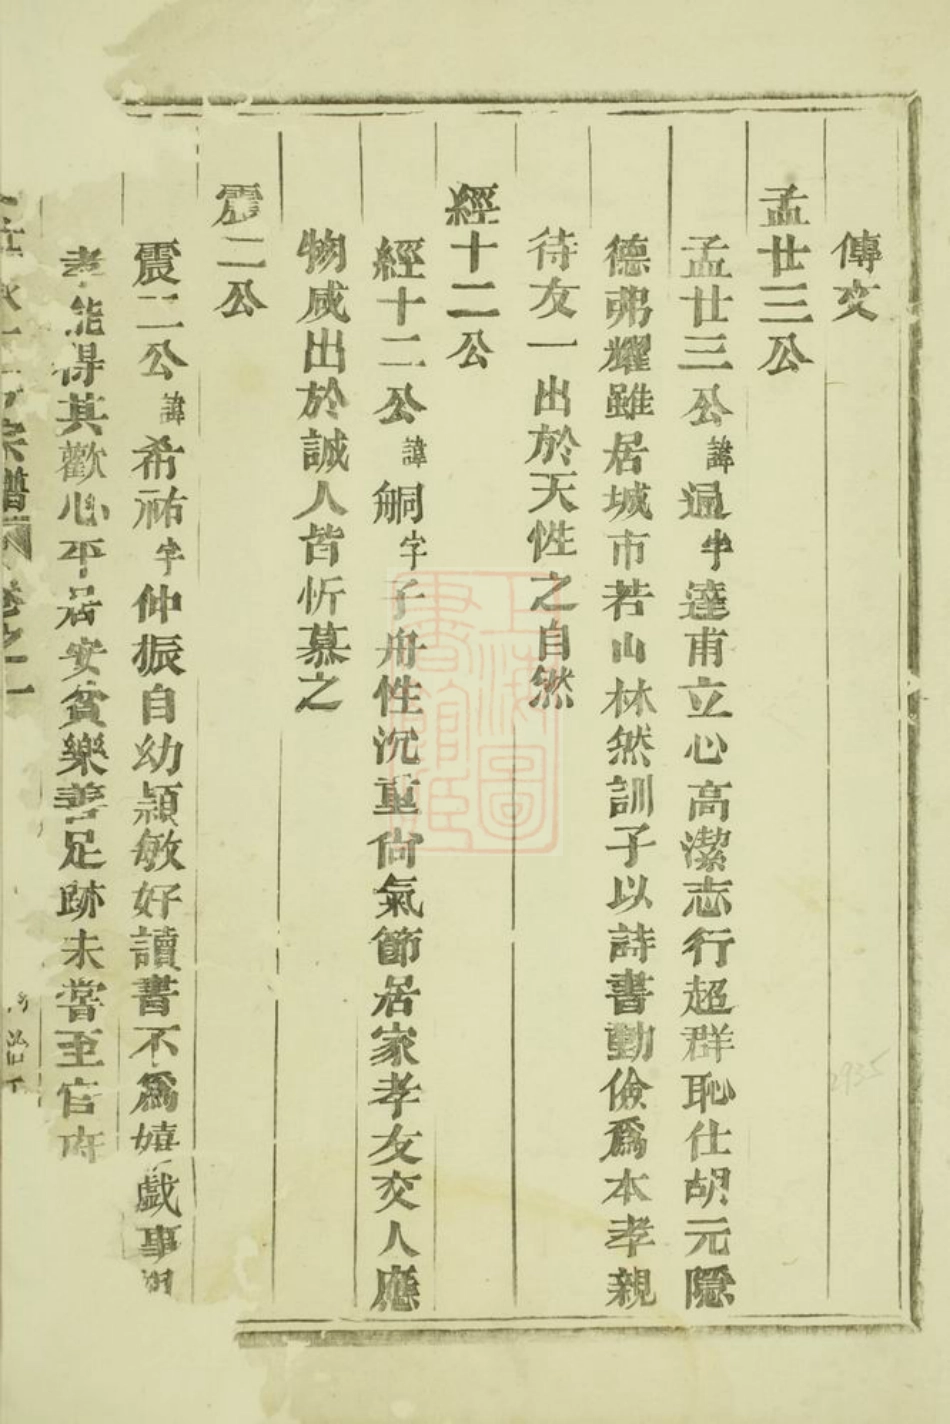 傳文
孟廿三公
孟廿三公諱逥字達甫立心高潔志行超群恥仕胡元隱
德弗耀雖居城市若山林然訓子以詩書勤儉爲本孝親
待友一出於天性之自然
經十二公
經十二公諱舸字子舟性沉重尚氣節居家孝友交人應
物咸出於誠人皆忻慕之
震二公
震二公諱希祐字仲振自幼穎敏好讀書不爲嬉戲事
孝能得其歡心平居安貧樂善足跡未嘗至官府
宗譜 卷之一
上海圖書館藏
2935